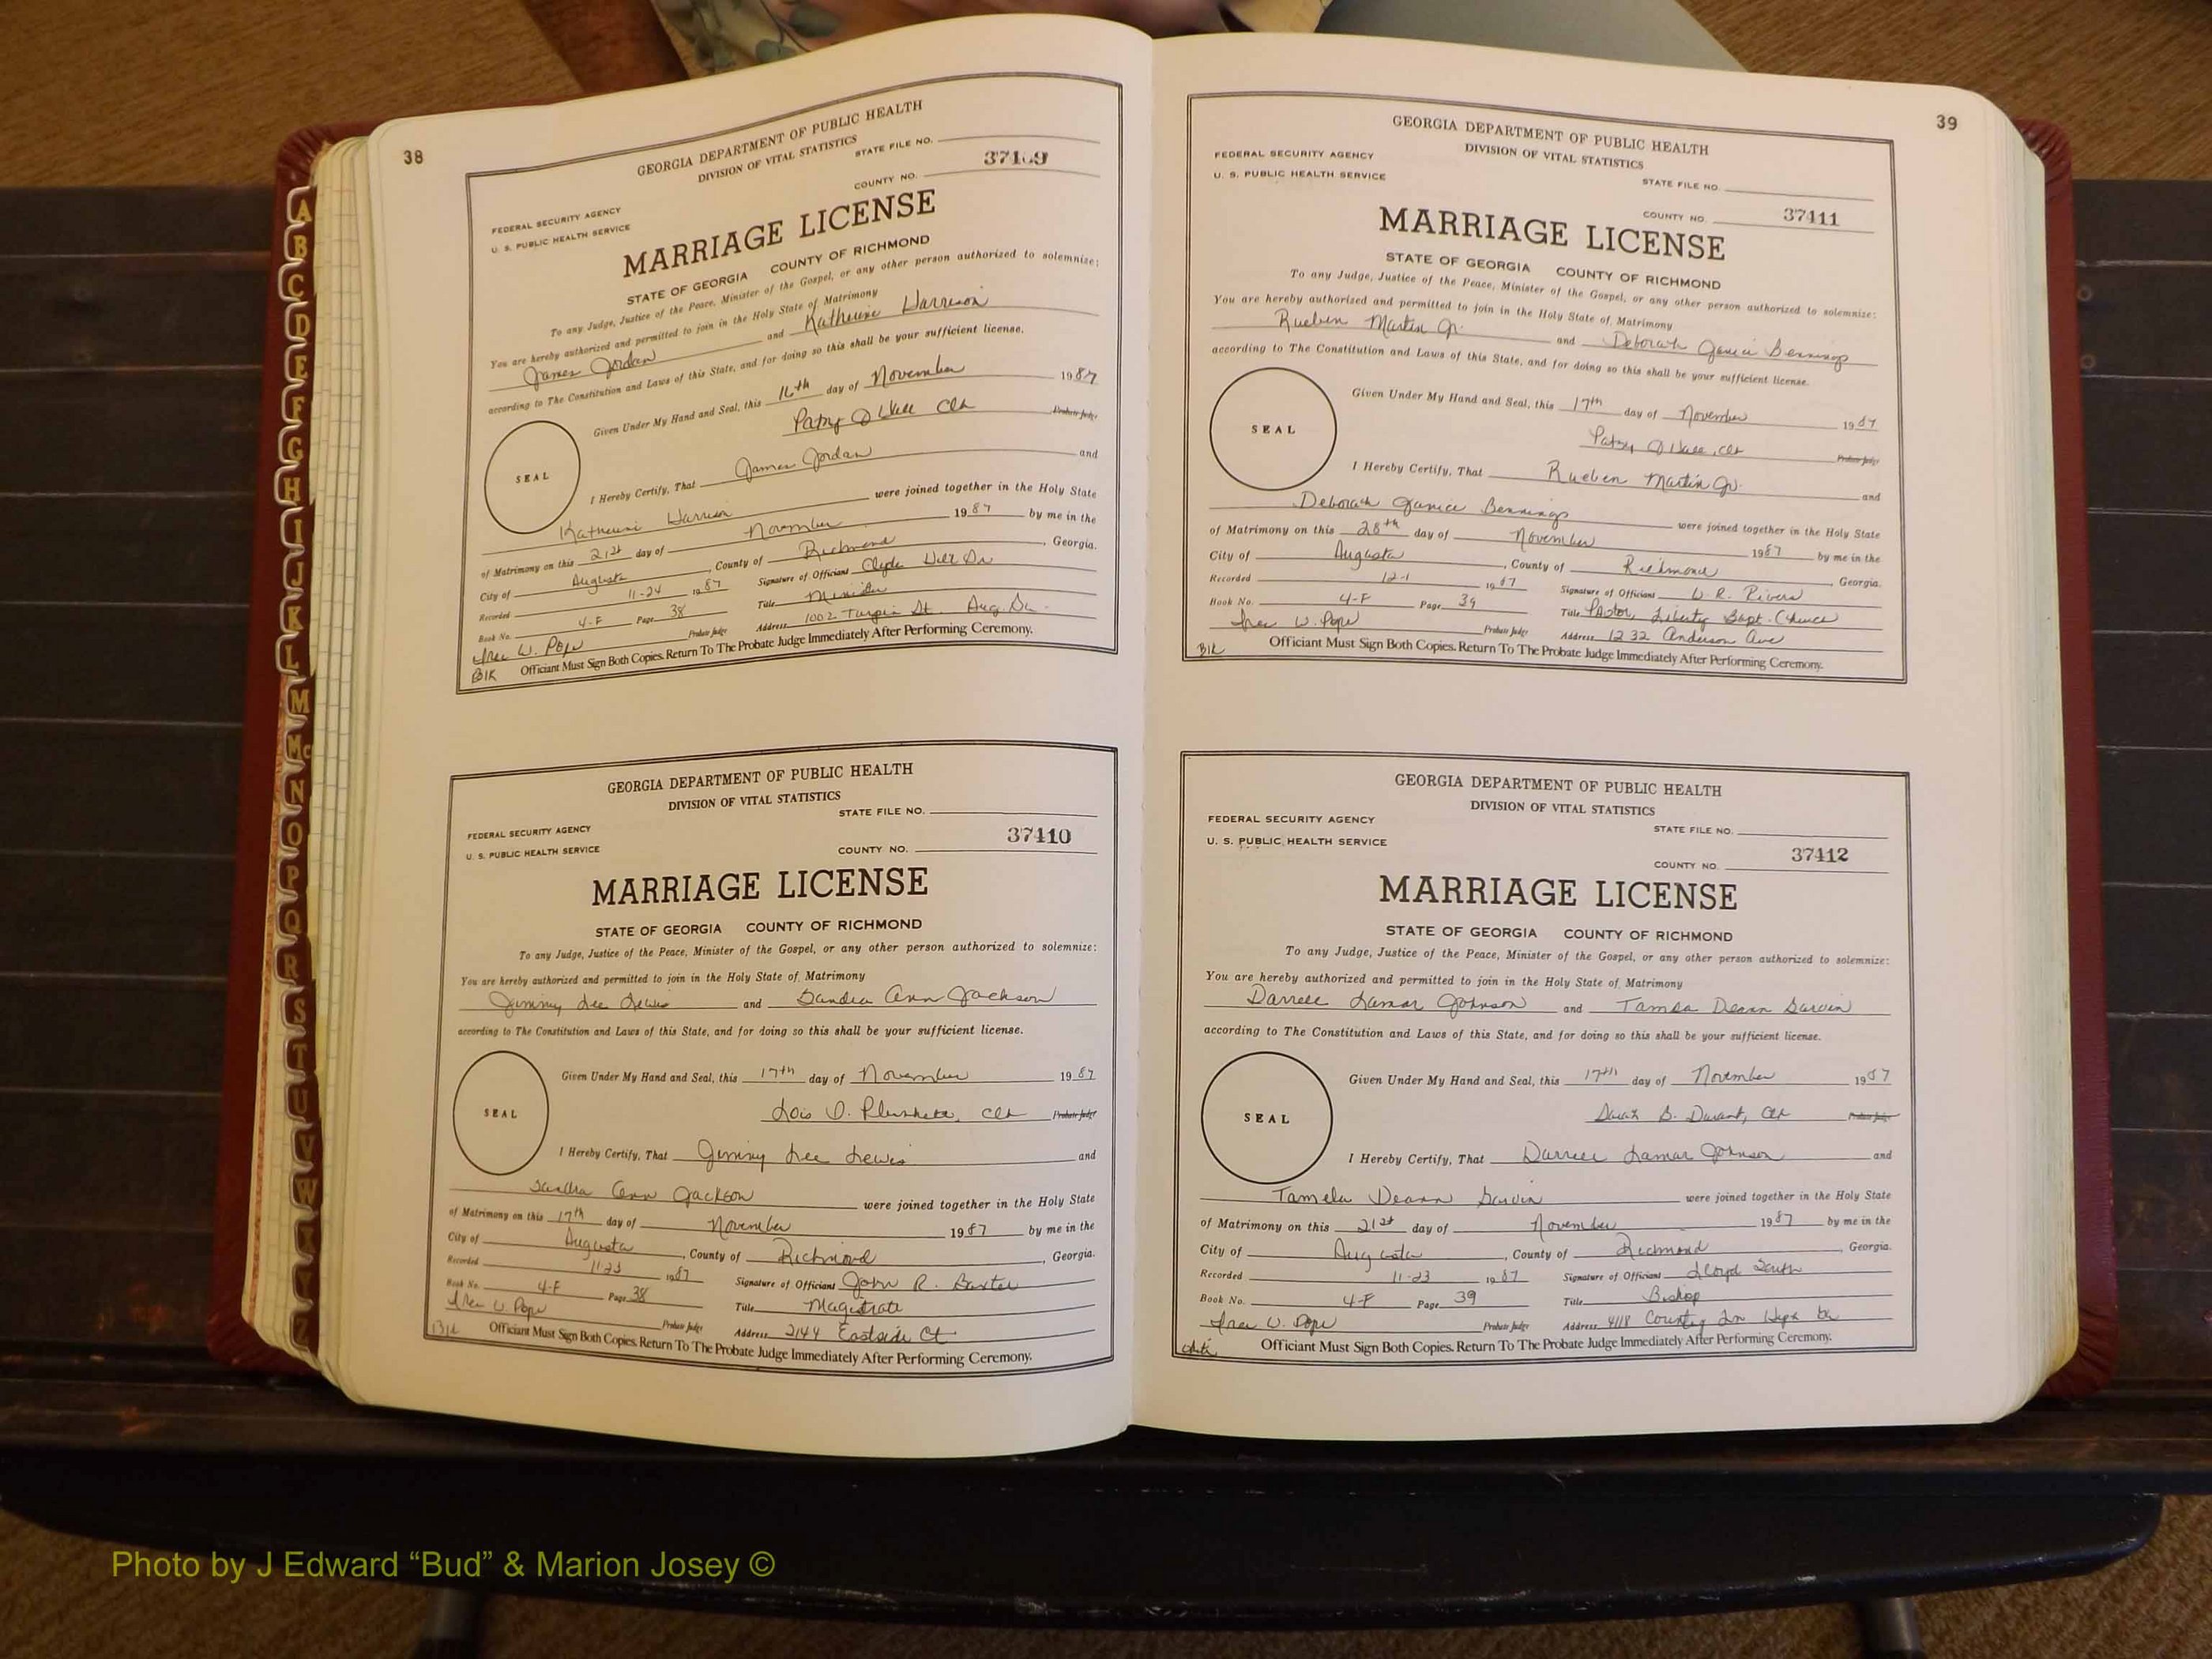 38
GEORGIA DEPARTMENT OF PUBLIC HEALTH
DIVISION OF VITAL STATISTICS
STATE FILE NO.
FEDERAL SECURITY AGENCY
U. S. PUBLIC HEALTH SERVICE
COUNTY NO.
MARRIAGE LICENSE
STATE OF GEORGIA COUNTY OF RICHMOND
To any Judge, Justice of the Peace, Minister of the Gospel, or any other person authorized to solemnize:
You are hereby authorized and permitted to join in the Holy State of Matrimony
James Jordan and Katherine Harrison
according to The Constitution and Laws of this State, and for doing so this shall be your sufficient license.
Given Under My Hand and Seal, this 16th day of November 1987
Patsy Clk Probate Judge
SEAL
I Hereby Certify, That James Jordan and
Katherine Harrison were joined together in the Holy State
of Matrimony on this 21st day of November 1987 by me in the
City of Augusta, County of Richmond, Georgia.
Recorded 11-24 1987 Signature of Officiant Clyde Hill Sr
Book No. 4-F Page 38 Title Minister
W. Pope Probate Judge Address 1002 Turpin St. Aug. Ga.
Blk Officiant Must Sign Both Copies. Return To The Probate Judge Immediately After Performing Ceremony.
GEORGIA DEPARTMENT OF PUBLIC HEALTH
DIVISION OF VITAL STATISTICS
STATE FILE NO.
FEDERAL SECURITY AGENCY
U. S. PUBLIC HEALTH SERVICE
COUNTY NO. 37410
MARRIAGE LICENSE
STATE OF GEORGIA COUNTY OF RICHMOND
To any Judge, Justice of the Peace, Minister of the Gospel, or any other person authorized to solemnize:
You are hereby authorized and permitted to join in the Holy State of Matrimony
Jimmy Lee Lewis and Sandra Ann Jackson
according to The Constitution and Laws of this State, and for doing so this shall be your sufficient license.
Given Under My Hand and Seal, this 17th day of November 1987
Lois D. Plunkett, Clk Probate Judge
SEAL
I Hereby Certify, That Jimmy Lee Lewis and
Sandra Ann Jackson were joined together in the Holy State
of Matrimony on this 17th day of November 1987 by me in the
City of Augusta, County of Richmond, Georgia.
Recorded 11-23 1987 Signature of Officiant John R. Baxter
Book No. 4-F Page 38 Title Magistrate
W. Pope Probate Judge Address 2144 Eastside Ct
Blk Officiant Must Sign Both Copies. Return To The Probate Judge Immediately After Performing Ceremony.
39
GEORGIA DEPARTMENT OF PUBLIC HEALTH
DIVISION OF VITAL STATISTICS
FEDERAL SECURITY AGENCY
U. S. PUBLIC HEALTH SERVICE
STATE FILE NO.
COUNTY NO. 37411
MARRIAGE LICENSE
STATE OF GEORGIA COUNTY OF RICHMOND
To any Judge, Justice of the Peace, Minister of the Gospel, or any other person authorized to solemnize:
You are hereby authorized and permitted to join in the Holy State of Matrimony
Rueben Martin Jr. and Deborah Janice Bennings
according to The Constitution and Laws of this State, and for doing so this shall be your sufficient license.
Given Under My Hand and Seal, this 17th day of November 1987
Patsy, Clk Probate Judge
SEAL
I Hereby Certify, That Rueben Martin Jr. and
Deborah Janice Bennings were joined together in the Holy State
of Matrimony on this 28th day of November 1987 by me in the
City of Augusta, County of Richmond, Georgia.
Recorded 12-1 1987 Signature of Officiant W. R. Rivers
Book No. 4-F Page 39 Title Pastor, Liberty Bapt. Church
W. Pope Probate Judge Address 1232 Anderson Ave
Blk Officiant Must Sign Both Copies. Return To The Probate Judge Immediately After Performing Ceremony.
GEORGIA DEPARTMENT OF PUBLIC HEALTH
DIVISION OF VITAL STATISTICS
FEDERAL SECURITY AGENCY
STATE FILE NO.
U. S. PUBLIC HEALTH SERVICE
COUNTY NO. 37412
MARRIAGE LICENSE
STATE OF GEORGIA COUNTY OF RICHMOND
To any Judge, Justice of the Peace, Minister of the Gospel, or any other person authorized to solemnize:
You are hereby authorized and permitted to join in the Holy State of Matrimony
Darrell Lamar Johnson and Tamela Deann
according to The Constitution and Laws of this State, and for doing so this shall be your sufficient license.
Given Under My Hand and Seal, this 17th day of November 1987
Sarah B. Durant, Clk Probate Judge
SEAL
I Hereby Certify, That Darrell Lamar Johnson and
Tamela Deann were joined together in the Holy State
of Matrimony on this 21st day of November 1987 by me in the
City of Augusta, County of Richmond, Georgia.
Recorded 11-23 1987 Signature of Officiant Lloyd
Book No. 4-F Page 39 Title Bishop
W. Pope Probate Judge Address 4118 Country Ln
Officiant Must Sign Both Copies. Return To The Probate Judge Immediately After Performing Ceremony.
A
B
C
D
E
F
G
H
I
J
K
L
M
Mc
N
O
P
Q
R
S
T
U
V
W
X
Y
Z
Photo by J Edward “Bud” & Marion Josey ©